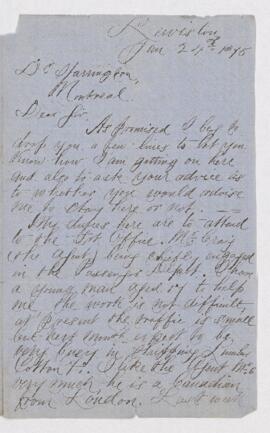 Lewiston
Jan 24th 1875
Dr Harrington,
Montreal.
Dear Sir.
As Promised I beg to
drop you a few lines to let you
know how I am getting on here
and also to ask your advice as
to whether you would advise
me to stay here or not
My duties here are to attend
to the Office. Mr Craig
(the Agent) being chiefly engaged
in the Passenger Dept. I have
a young man aged 17 to help
me the work is not difficult
at present the traffic is small
but next month expect to be
very busy in shipping Lumber
Cotton &c. I like the Agent
very much he is a Canadian
from London. Last week